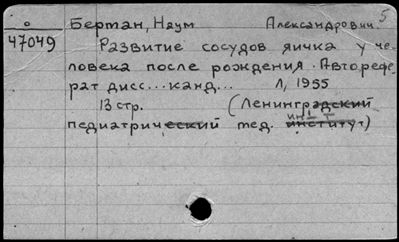 о Бертан, Наум Александрович. 5
47049 Развитие сосудов яичка у че-
ловека после рождения. Авторефе-
рат дисс... канд... Л, 1955
13 стр. (Ленинградский
ин-т
педиатрический мед. институт)